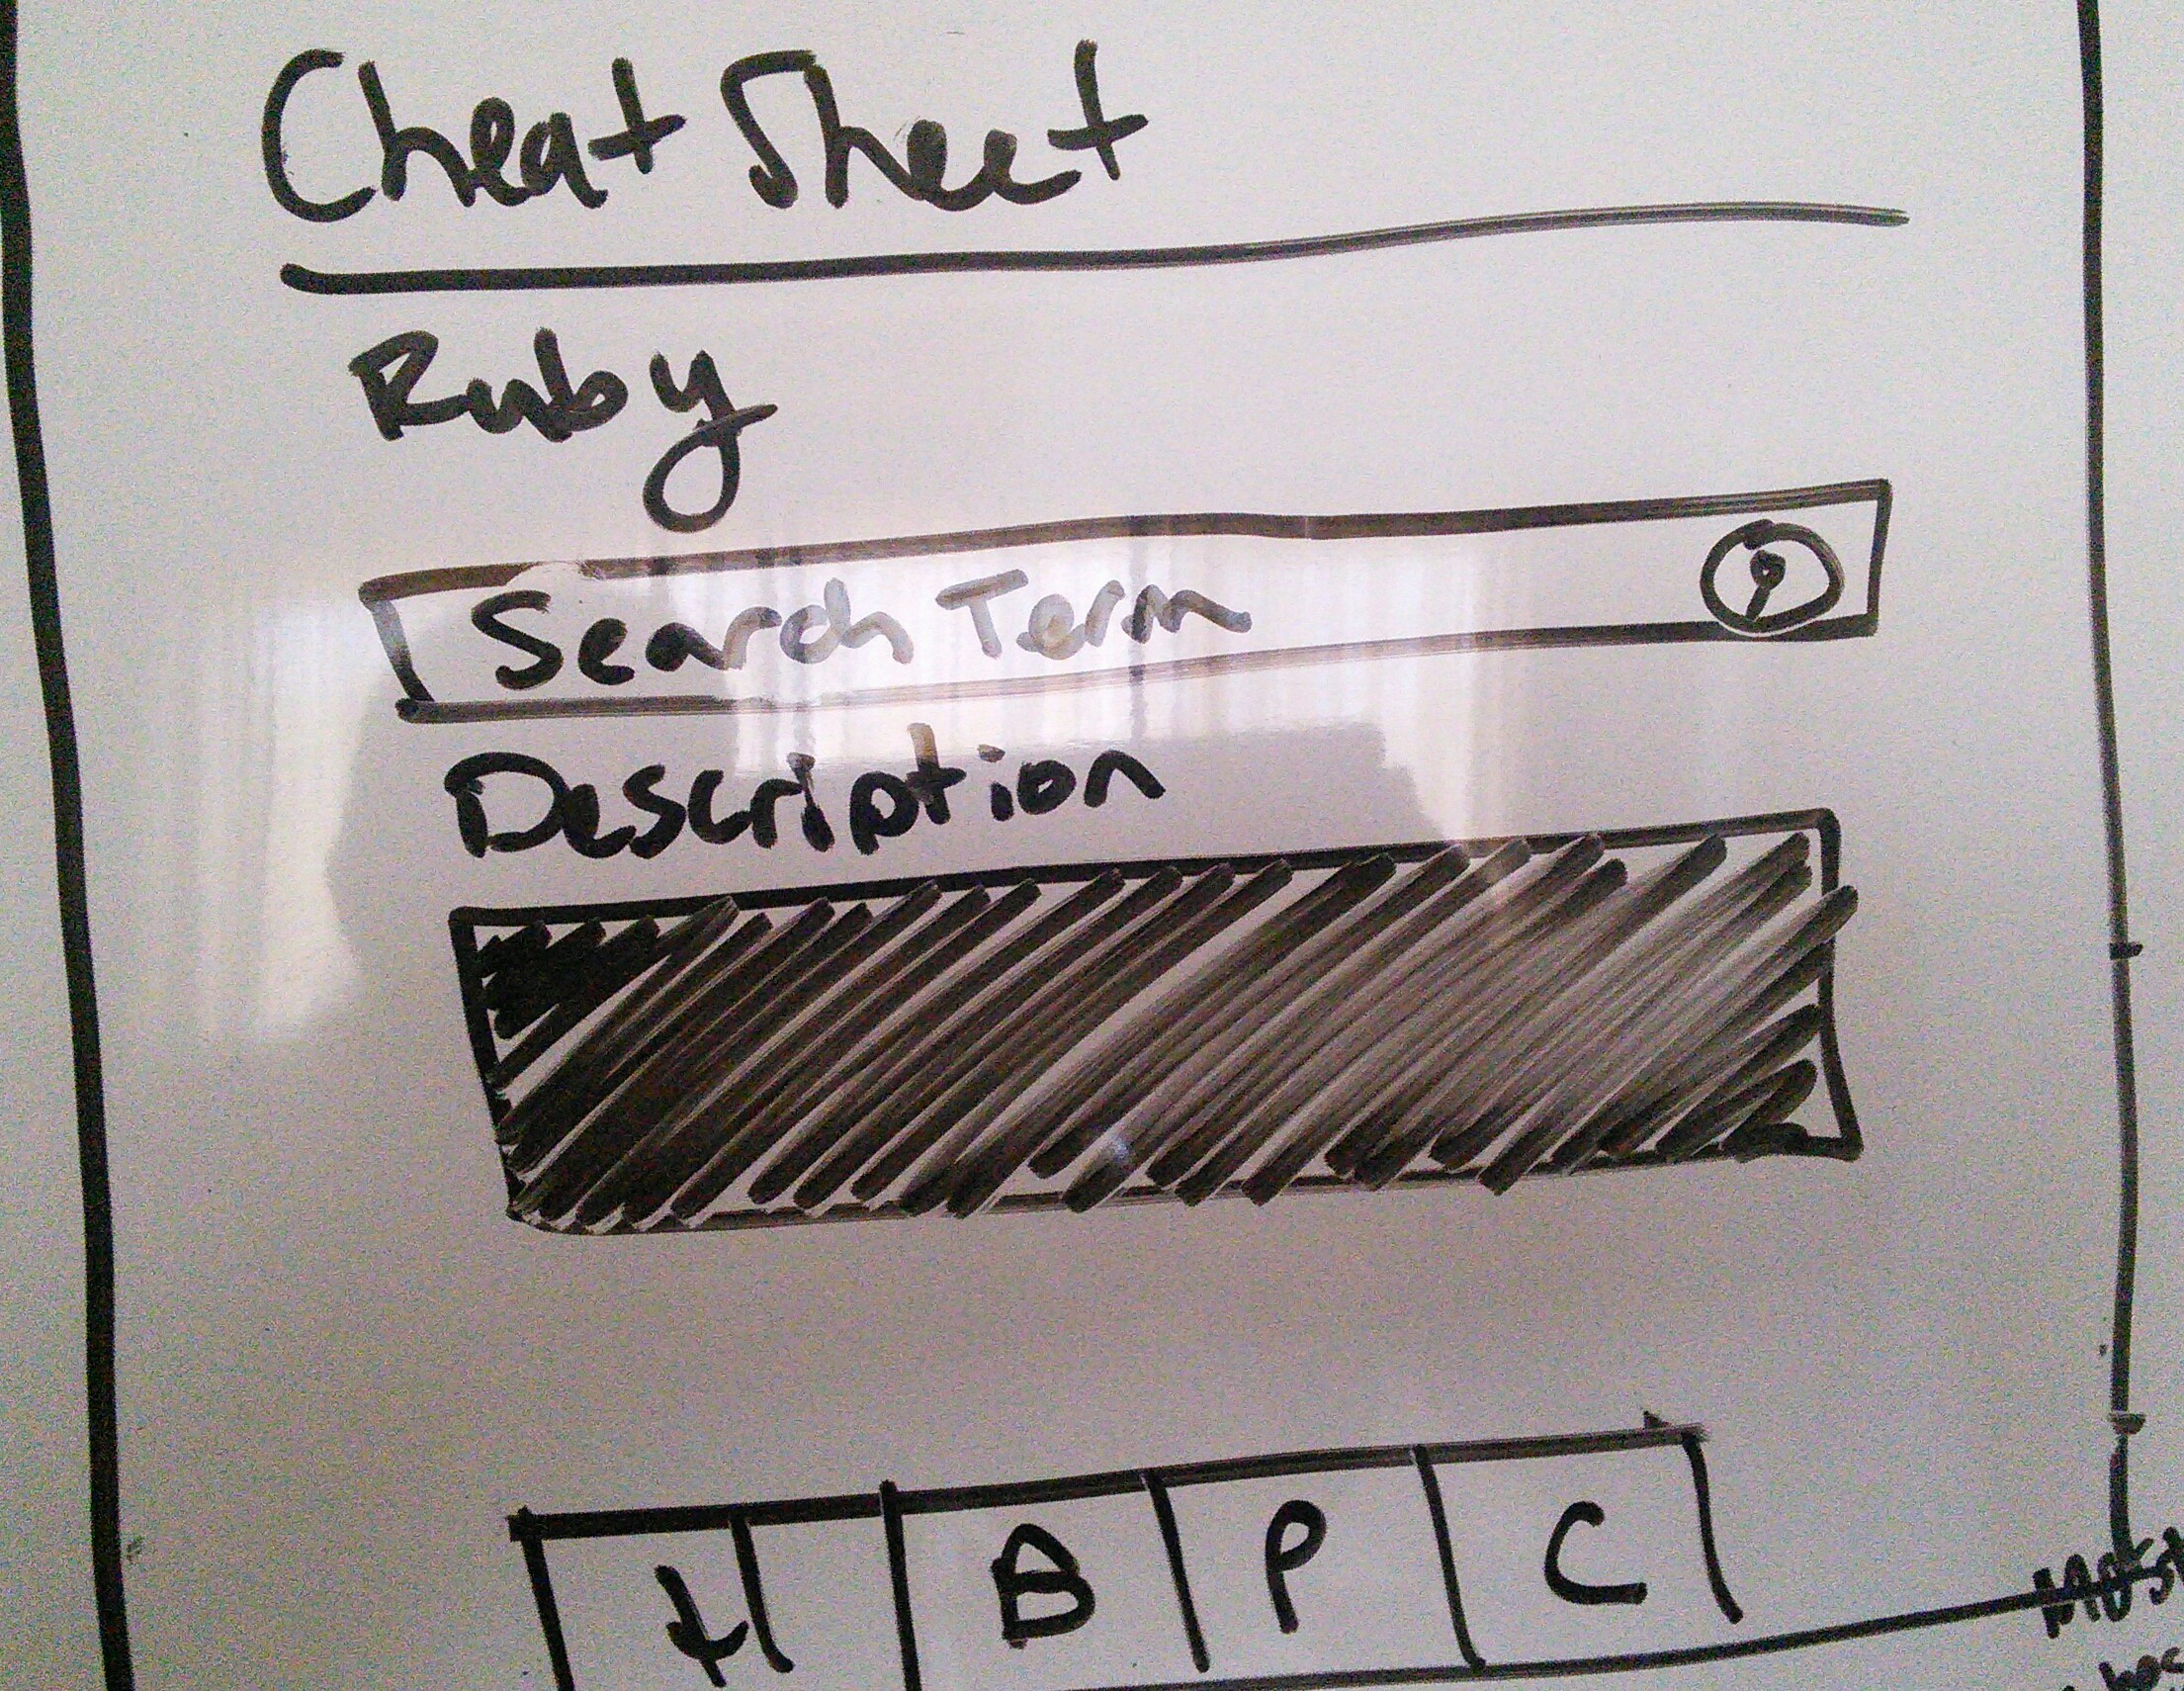 Cheat Sheet
Ruby
Search Term
Description
H B P C